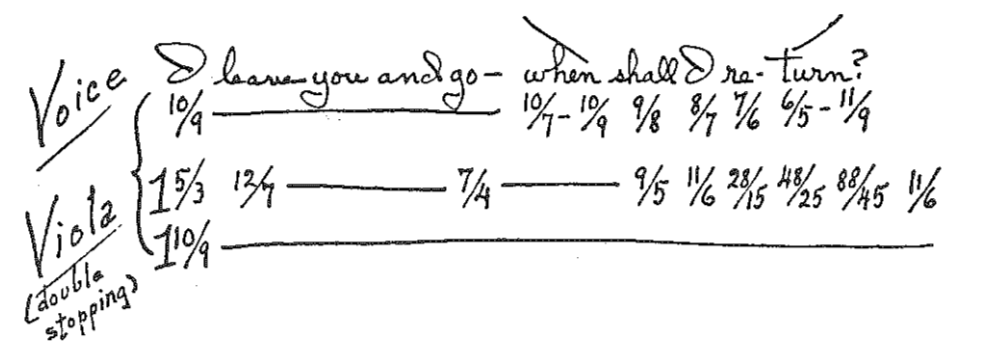 Voice
I leave you and go- when shall I re-turn?
10/9 10/7-10/9 9/8 8/7 7/6 6/5-11/9
Viola
(double
stopping)
1 5/3 12/7 7/4 9/5 11/6 28/15 48/25 88/45 11/6
1 10/9